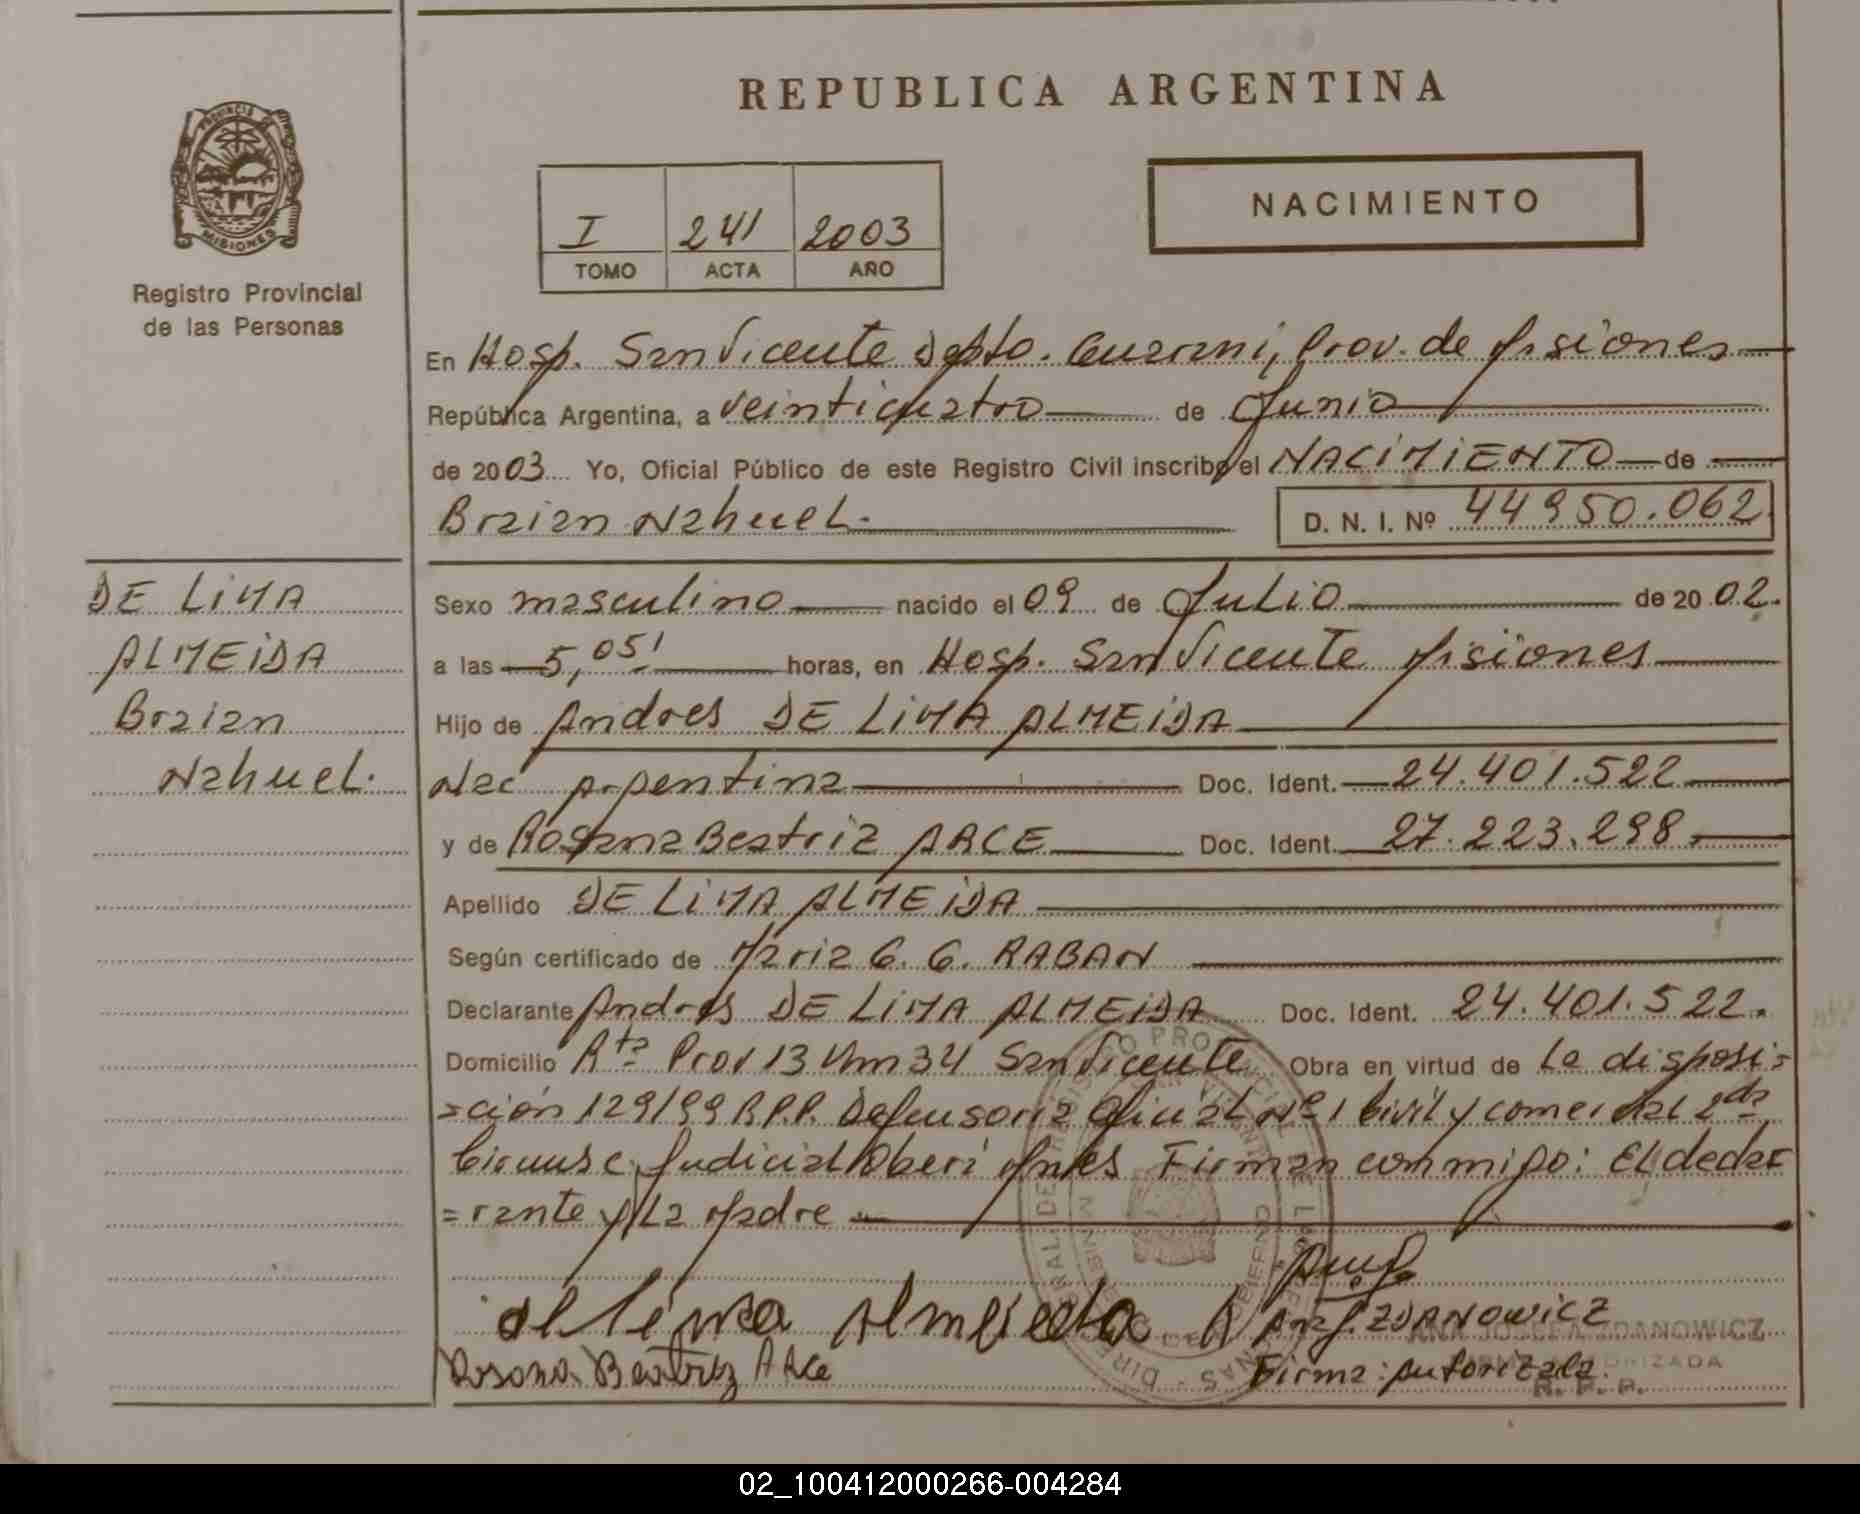 REPUBLICA ARGENTINA
PROVINCIA DE
MISIONES
Registro Provincial
de las Personas
I 241 2003
TOMO ACTA AÑO
NACIMIENTO
En Hosp. San Vicente Depto. Guarani, Prov. de Misiones
República Argentina, a veinticuatro de Junio
de 2003 Yo, Oficial Público de este Registro Civil inscribo el NACIMIENTO de
Braian Nahuel.
D. N. I. Nº 44950.062
DE LIMA
ALMEIDA
Braian
Nahuel.
Sexo masculino nacido el 09 de Julio de 20 02.
a las 5,05' horas, en Hosp. San Vicente Misiones
Hijo de Andres DE LIMA ALMEIDA
Nac Argentina Doc. Ident. 24.401.522
y de Rosana Beatriz ARCE Doc. Ident. 27.223.298.
Apellido DE LIMA ALMEIDA
Según certificado de Maria G. G. RABAN
Declarante Andres DE LIMA ALMEIDA Doc. Ident. 24.401.522.
Domicilio Rta Prov 13 Km 34 San Vicente Obra en virtud de La disposi=
=ción 129/99 R.P.P. Defensoria Oficial Nº 1 Civil y comercial 2da
Circunsc. Judicial Oberá Mnes Firman conmigo: El decla=
=rante y La Madre
de lima Almeida A
Ana J. ZDANOWICZ
ANA JOSEFA ZDANOWICZ
Rosana Beatriz Arce
Firma: Autorizada.
FIRMA AUTORIZADA
R. P. P.
02_100412000266-004284